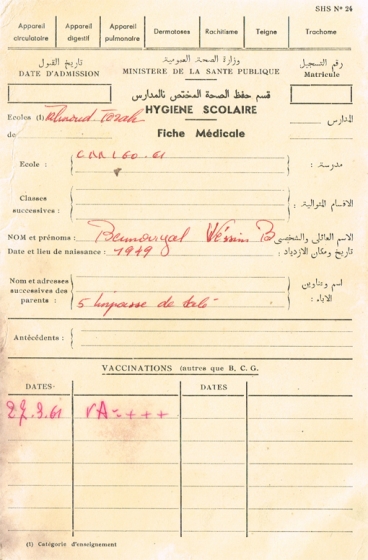 SHS Nº 24
Appareil circulatoire
Appareil digestif
Appareil pulmonaire
Dermatoses
Rachitisme
Teigne
Trachome
تاريخ القبول
وزارة الصحة العمومية
رقم التسجيل
DATE D'ADMISSION
MINISTERE DE LA SANTE PUBLIQUE
Matricule
قسم حفظ الصحة المختص بالمدارس
HYGIENE SCOLAIRE
Ecoles (1) Torah
المدارس
de
Fiche Médicale
Ecole :
60.61
مدرسة :
Classes successives :
الاقسام المتوالية :
NOM et prénoms :
الاسم العائلي والشخصي
Date et lieu de naissance : 1949
تاريخ ومكان الازدياد :
Nom et adresses successives des parents : 5 impasse de Salé
اسم وعناوين الاباء :
Antécédents :
VACCINATIONS (autres que B. C. G.
DATES
DATES
27.3.61 VA = + + +
(1) Catégorie d'enseignement